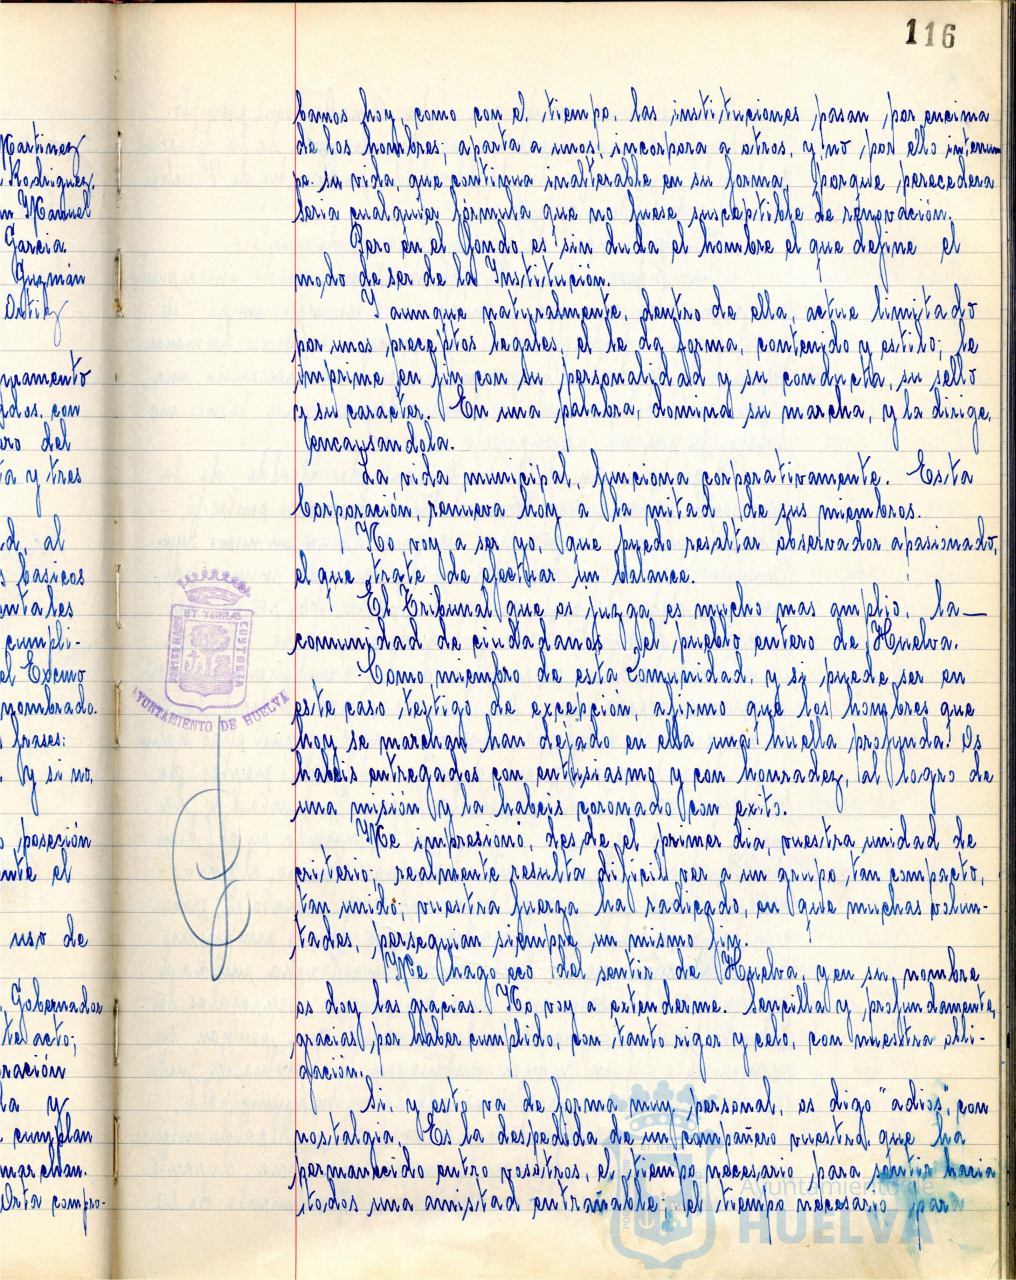 116
Martinez
Rodriguez.
n Manuel
Garcia
Guzmán
Ortiz
uramento
gados, con
ro del
ta y tres
d, al
s basicos
entales
cumpli-
el Excmo
nombrado.
frases:
y si no,
posesión
nte el
uso de
Gobernador
te acto;
ración
la y
cumplan
marchan.
Esta compro-
bamos hoy, como con el tiempo, las instituciones pasan por encima
de los hombres; aparta a unos, incorpora a otros, y no por ello interrum
pe su vida, que continua inalterable en su forma, porque perecedera
seria cualquier fórmula que no fuese susceptible de renovación.
Pero en el fondo es sin duda el hombre el que define el
modo de ser de la Institución.
Y aunque naturalmente, dentro de ella, actue limitado
por unos preceptos legales, el le da forma, contenido y estilo; le
imprime en fin con su personalidad y su conducta, su sello
y su caracter. En una palabra, domina su marcha, y la dirige,
encausandola.
La vida municipal, funciona corporativamente. Esta
Corporación, renueva hoy a la mitad de sus miembros.
No voy a ser yo, que puedo resultar observador apasionado,
el que trate de efectuar un balance.
El Tribunal que os juzga es mucho mas amplio: la
comunidad de ciudadanos, el pueblo entero de Huelva.
Como miembro de esta Comunidad, y si puede ser en
este caso testigo de excepción, afirmo que los hombres que
hoy se marchan han dejado en ella una huella profunda. Os
habeis entregados con entusiasmo y con honradez, al logro de
una misión y la habeis coronado con exito.
Me impresionó, desde el primer dia, vuestra unidad de
criterio; realmente resulta dificil ver a un grupo tan compacto,
tan unido; vuestra fuerza ha radicado, en que muchas volun-
tades, perseguian siempre un mismo fin.
Me hago eco del sentir de Huelva, y en su nombre
os doy las gracias. No voy a extenderme. Sencilla y profundamente,
gracias por haber cumplido, con tanto rigor y celo, con nuestra obli-
gación.
Si, y esto va de forma muy personal, os digo "adios", con
nostalgia. Es la despedida de un compañero vuestro, que ha
permanecido entre vosotros, el tiempo necesario para sentir hacia
todos una amistad entrañable; el tiempo necesario para
AYUNTAMIENTO DE HUELVA
Ayuntamiento de
HUELVA